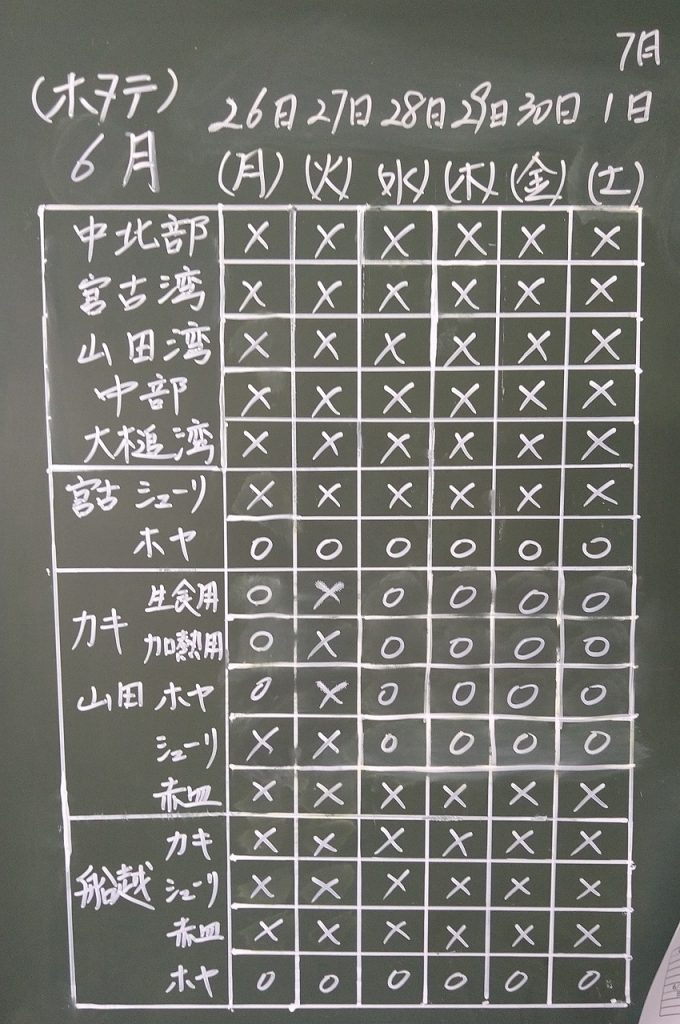 7月
(ホタテ) 26日 27日 28日 29日 30日 1日
6月 (月) (火) (水) (木) (金) (土)
中北部 × × × × × ×
宮古湾 × × × × × ×
山田湾 × × × × × ×
中部 × × × × × ×
大槌湾 × × × × × ×
宮古 シューリ × × × × × ×
ホヤ ○ ○ ○ ○ ○ ○
カキ 生食用 ○ × ○ ○ ○ ○
加熱用 ○ × ○ ○ ○ ○
山田 ホヤ ○ × ○ ○ ○ ○
シューリ × × ○ ○ ○ ○
赤皿 × × × × × ×
カキ × × × × × ×
船越 シューリ × × × × × ×
赤皿 × × × × × ×
ホヤ ○ ○ ○ ○ ○ ○